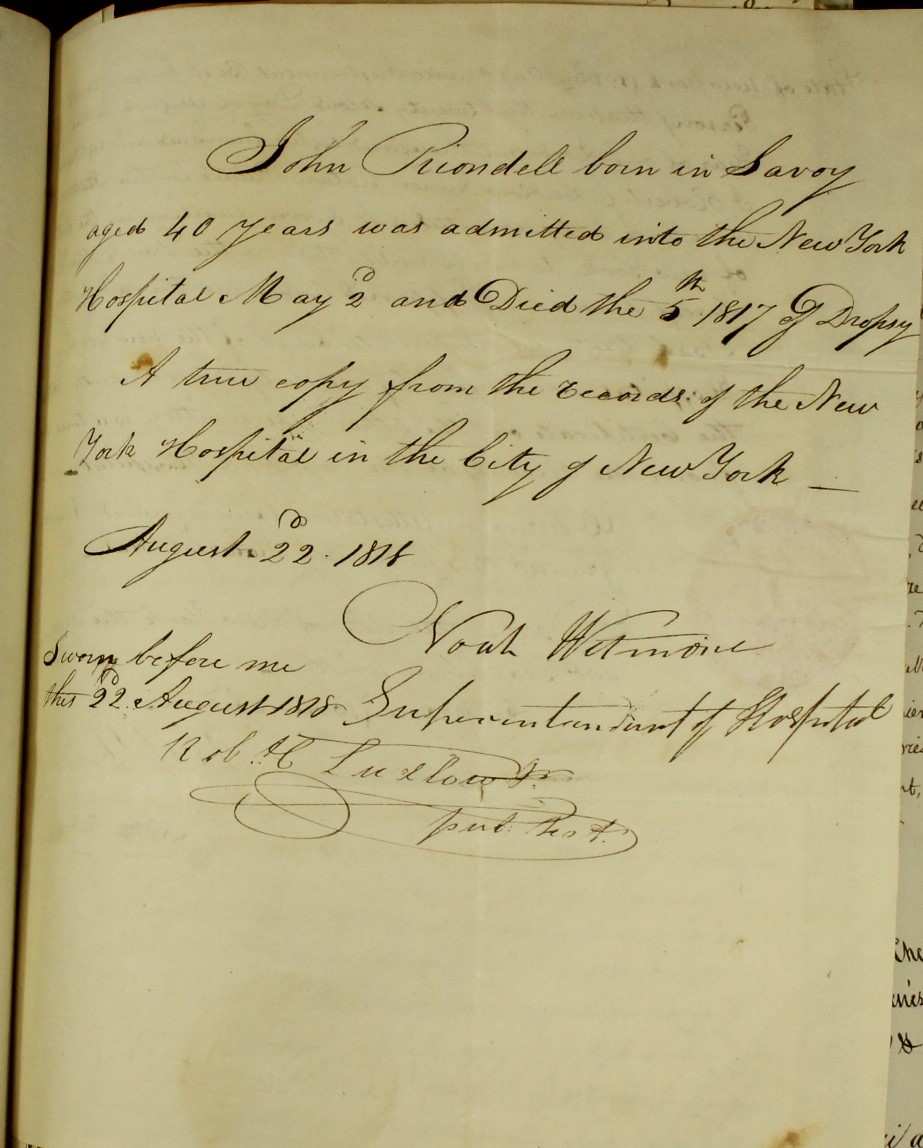 John Riondell born in Savoy
aged 40 years was admitted into the New York
Hospital May 2d and Died the 5th 1817 of Dropsy
A true copy from the records of the New
York Hospital in the City of New York —
August 22d 1818
Noah Wetmore
Sworn before me
this 22d August 1818
Superintendant of Hospital
Rob. H Ludlow Jr.